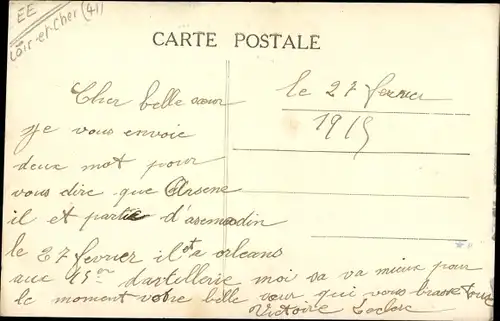 EE
Loir-et-Cher (41)
CARTE POSTALE
le 27 fevrier
1915
Cher belle sœur
Je vous envoie
deux mot pour
vous dire que Arsene
il et partie d'asmadin
le 27 fevrier il et a orleans
aux 45em dartillerie moi sa va mieux pour
le moment votre belle sœur qui vous brasse tous
Victoire Leclerc